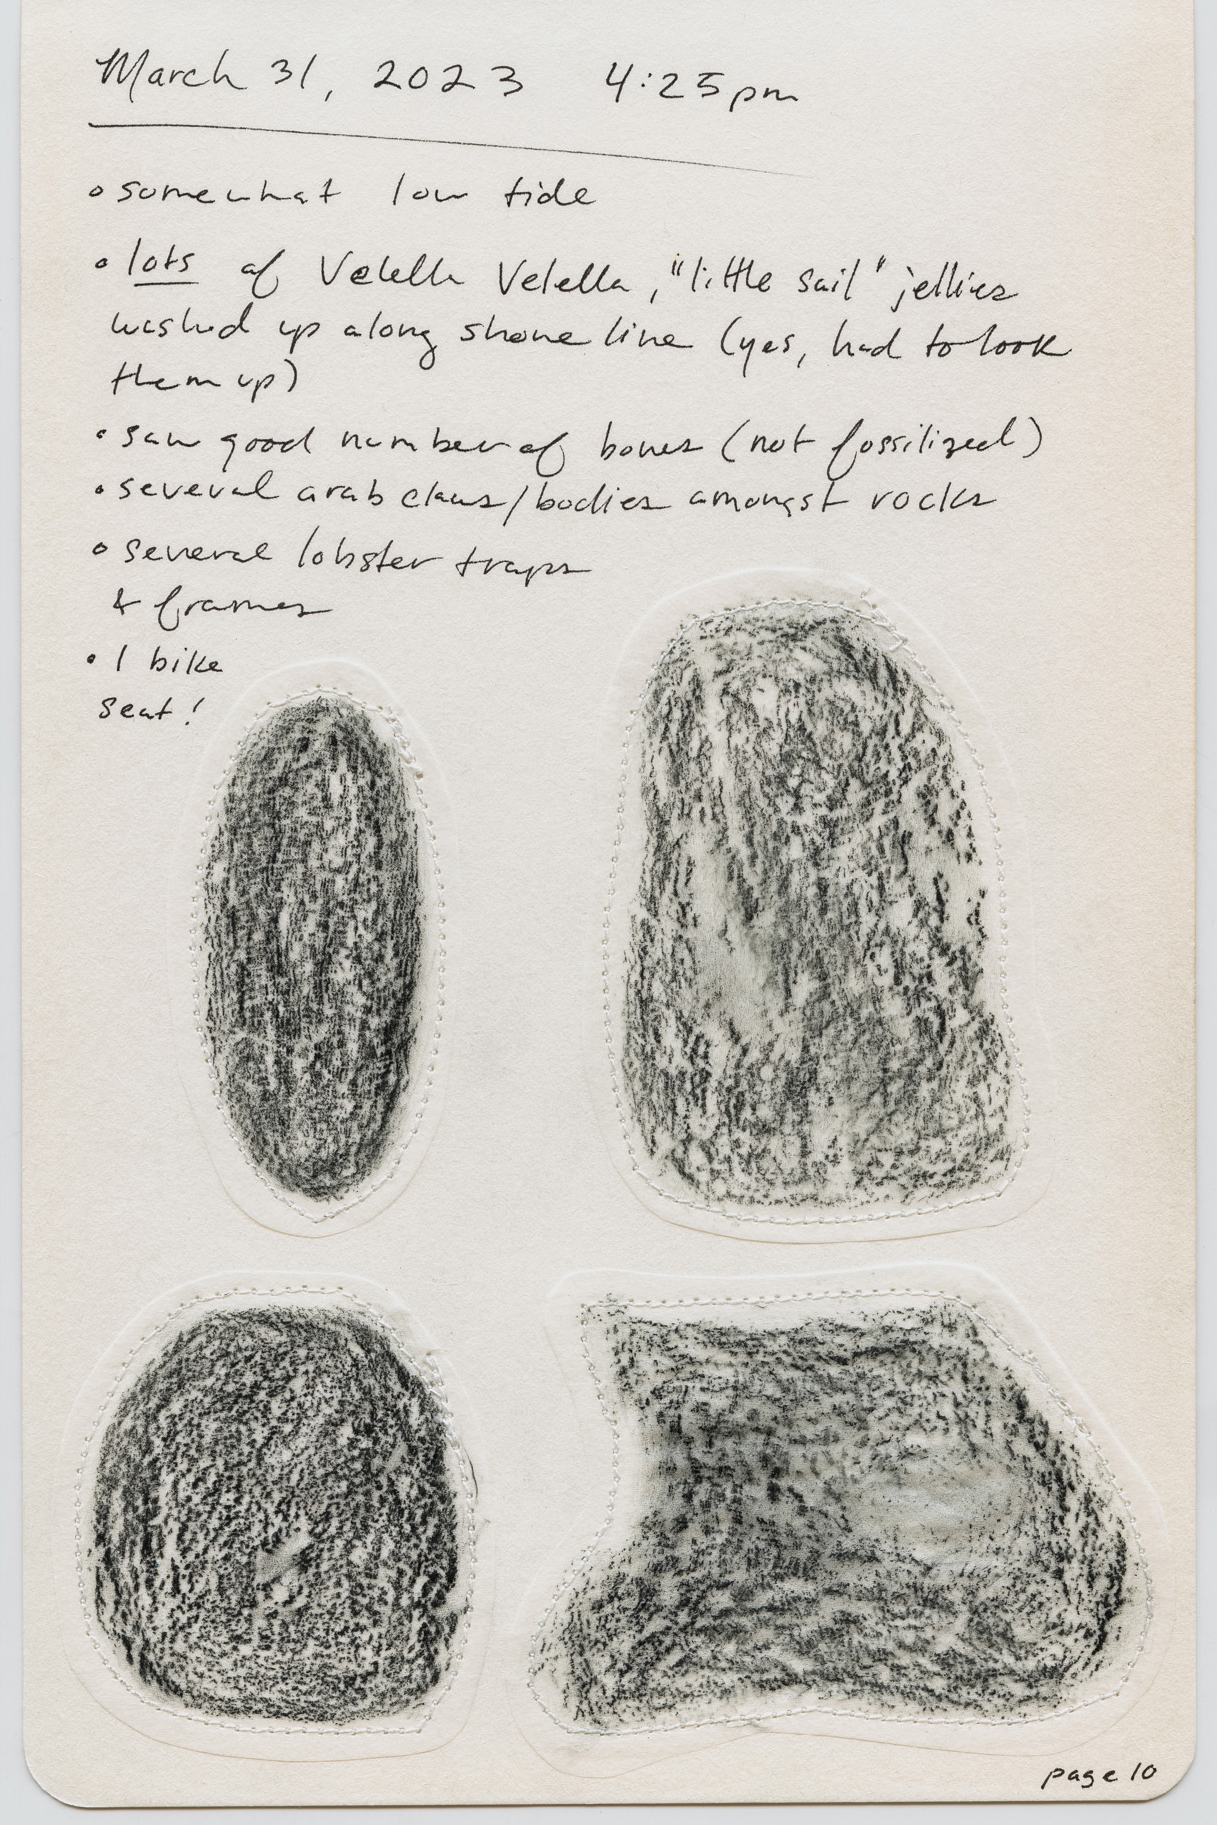 March 31, 2023 4:25pm
• somewhat low tide
• lots of Velella Velella, "little sail" jellies
washed up along shore line (yes, had to look
them up)
• saw good number of bones (not fossilized)
• several crab claws/bodies amongst rocks
• several lobster traps
& frames
• 1 bike
seat!
page 10